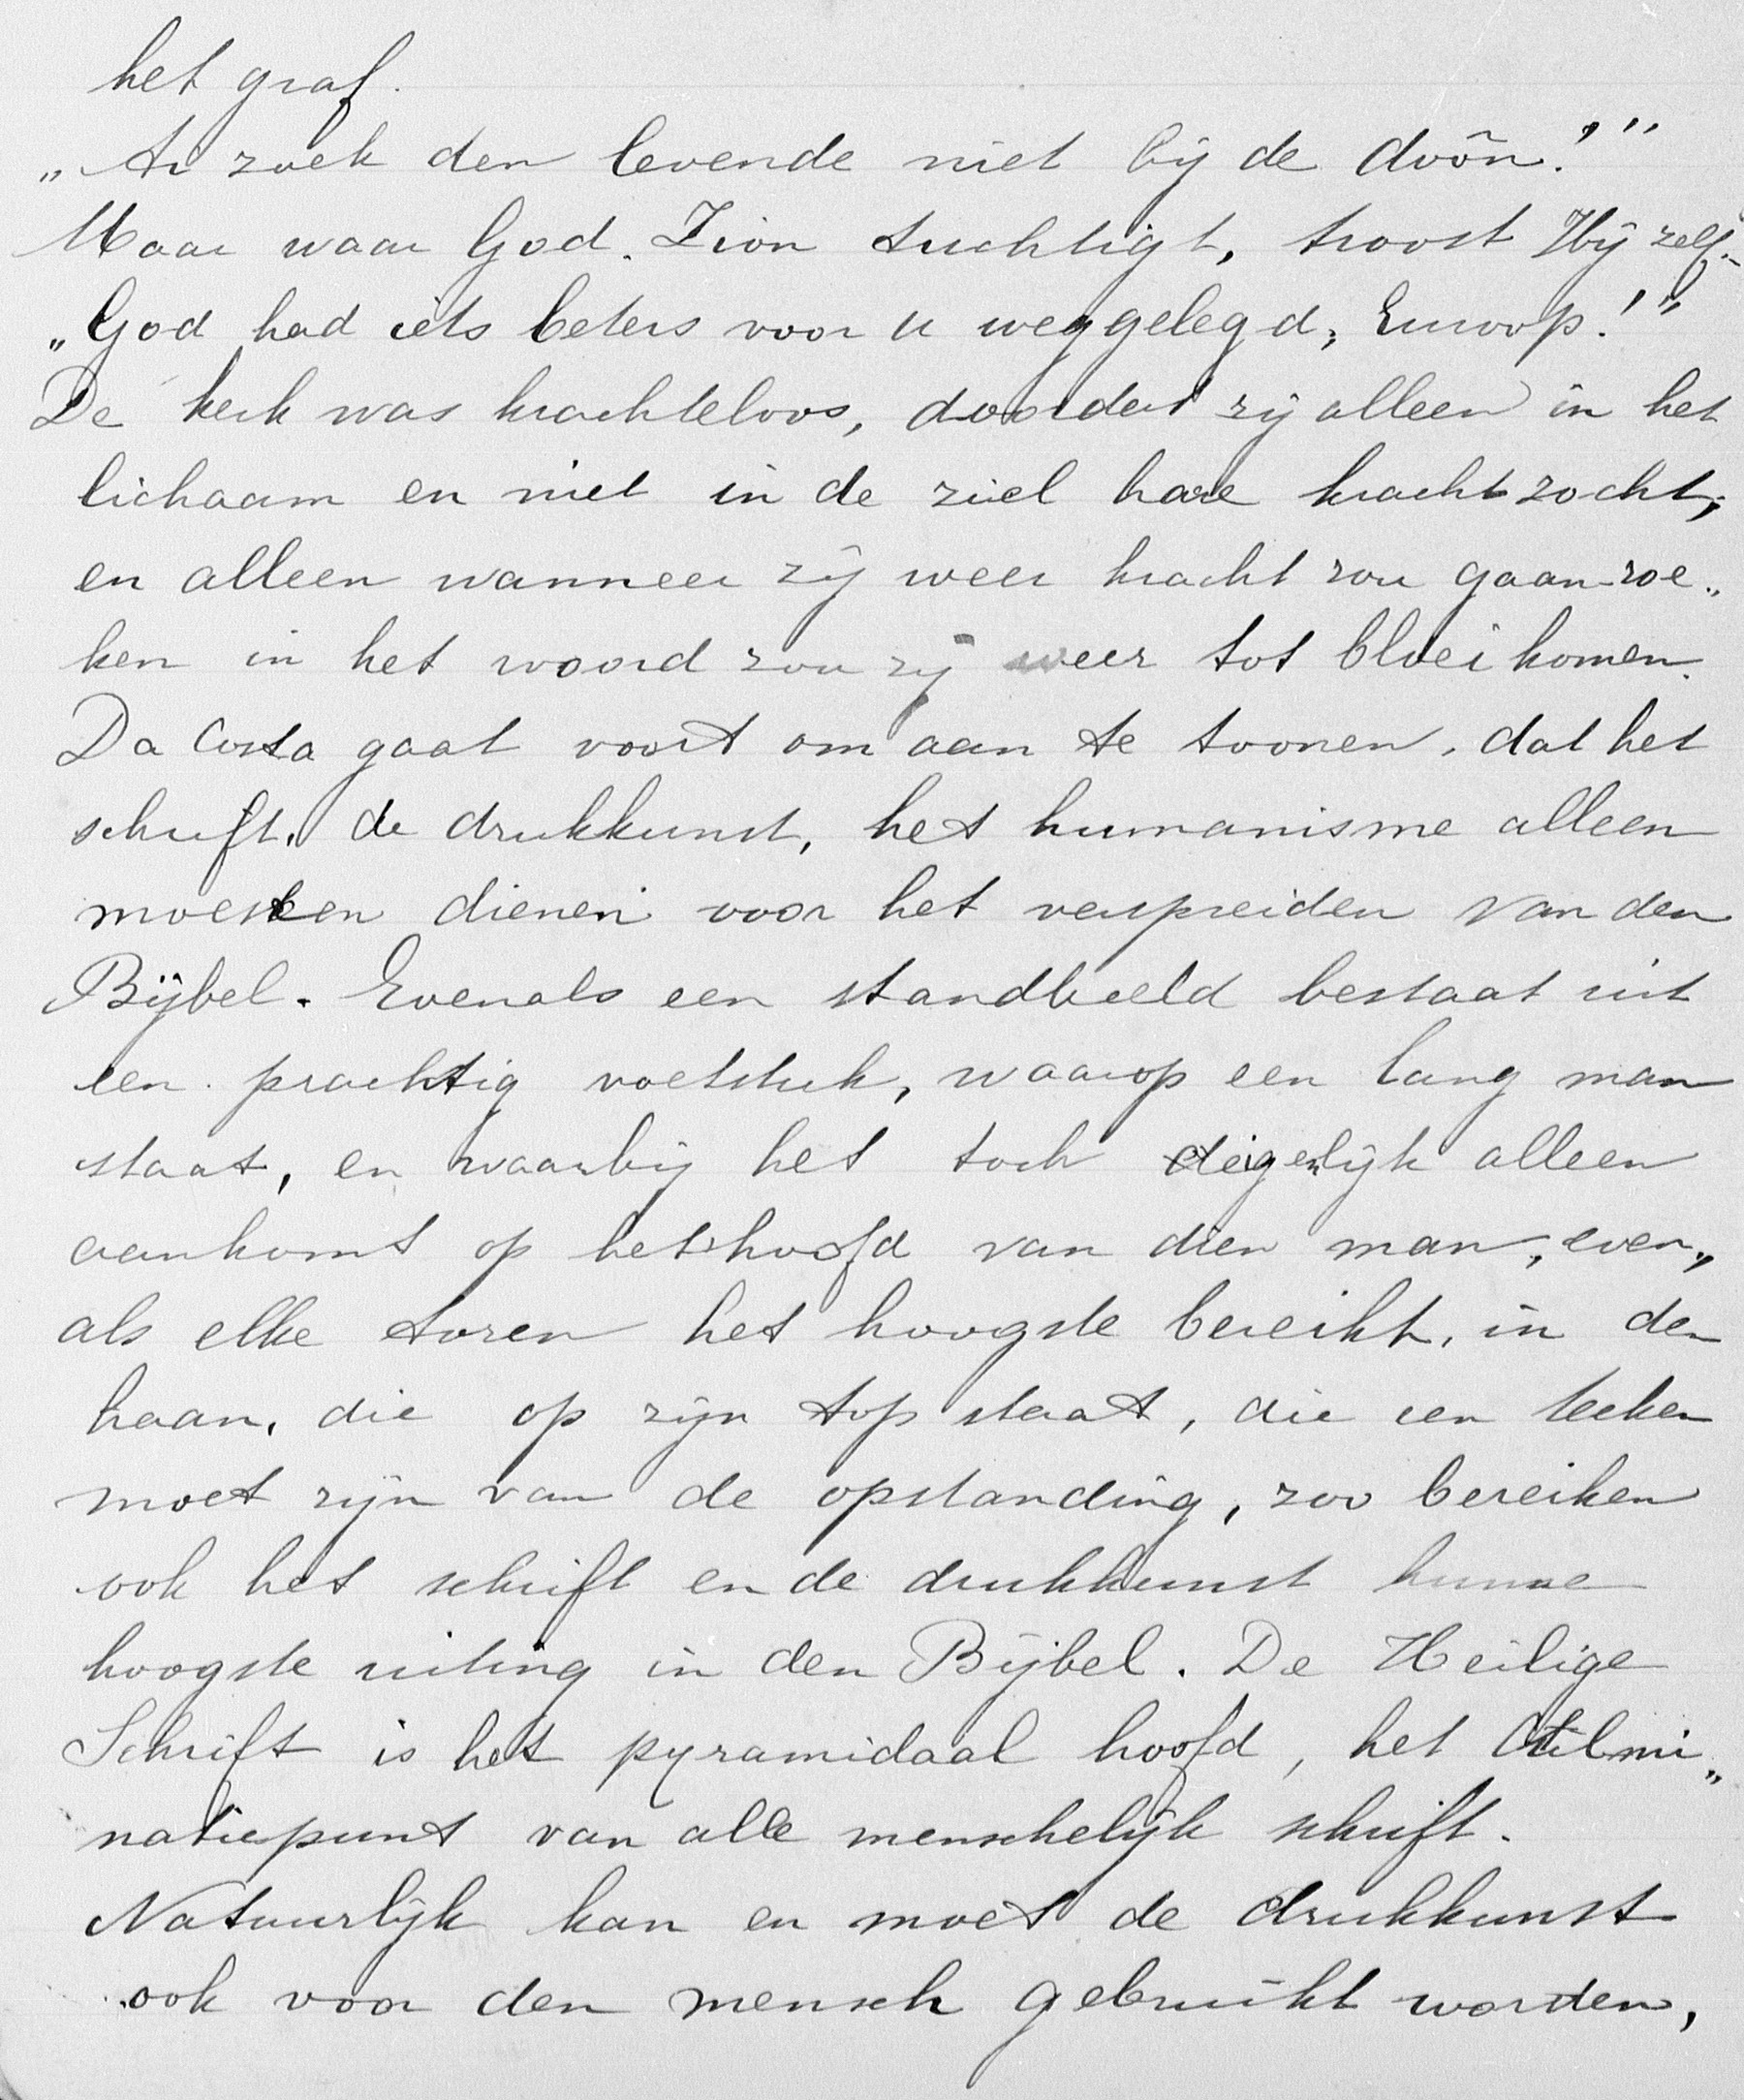 het graf.
„Ai zoek den levende niet bij de doôn!"
Maar waar God Zion tuchtigt, troost Hij zelf.
„God had iets beters voor u weggelegd, Euroop!"
De kerk was krachteloos, doordat zij alleen in het
lichaam en niet in de ziel hare kracht zocht,
en alleen wanneer zij weer kracht zou gaan zoe„
ken in het woord zou zij weer tot bloei komen.
Da Costa gaat voort om aan te toonen, dat het
schrift, de drukkunst, het humanisme alleen
moesten dienen voor het verspreiden van den
Bijbel. Evenals een standbeeld bestaat uit
een prachtig voetstuk, waarop een lang man
staat, en waarbij het toch eigenlijk alleen
aankomt op het hoofd van dien man, even„
als elke toren het hoogste bereikt, in den
haan, die op zijn top staat, die een teeken
moet zijn van de opstanding, zoo bereiken
ook het schrift en de drukkunst hunne
hoogste uiting in den Bijbel. De Heilige
Schrift is het pyramidaal hoofd, het Culmi„
natiepunt van alle menschelijk schrift.
Natuurlijk kan en moet de drukkunst
ook voor den mensch gebruikt worden,